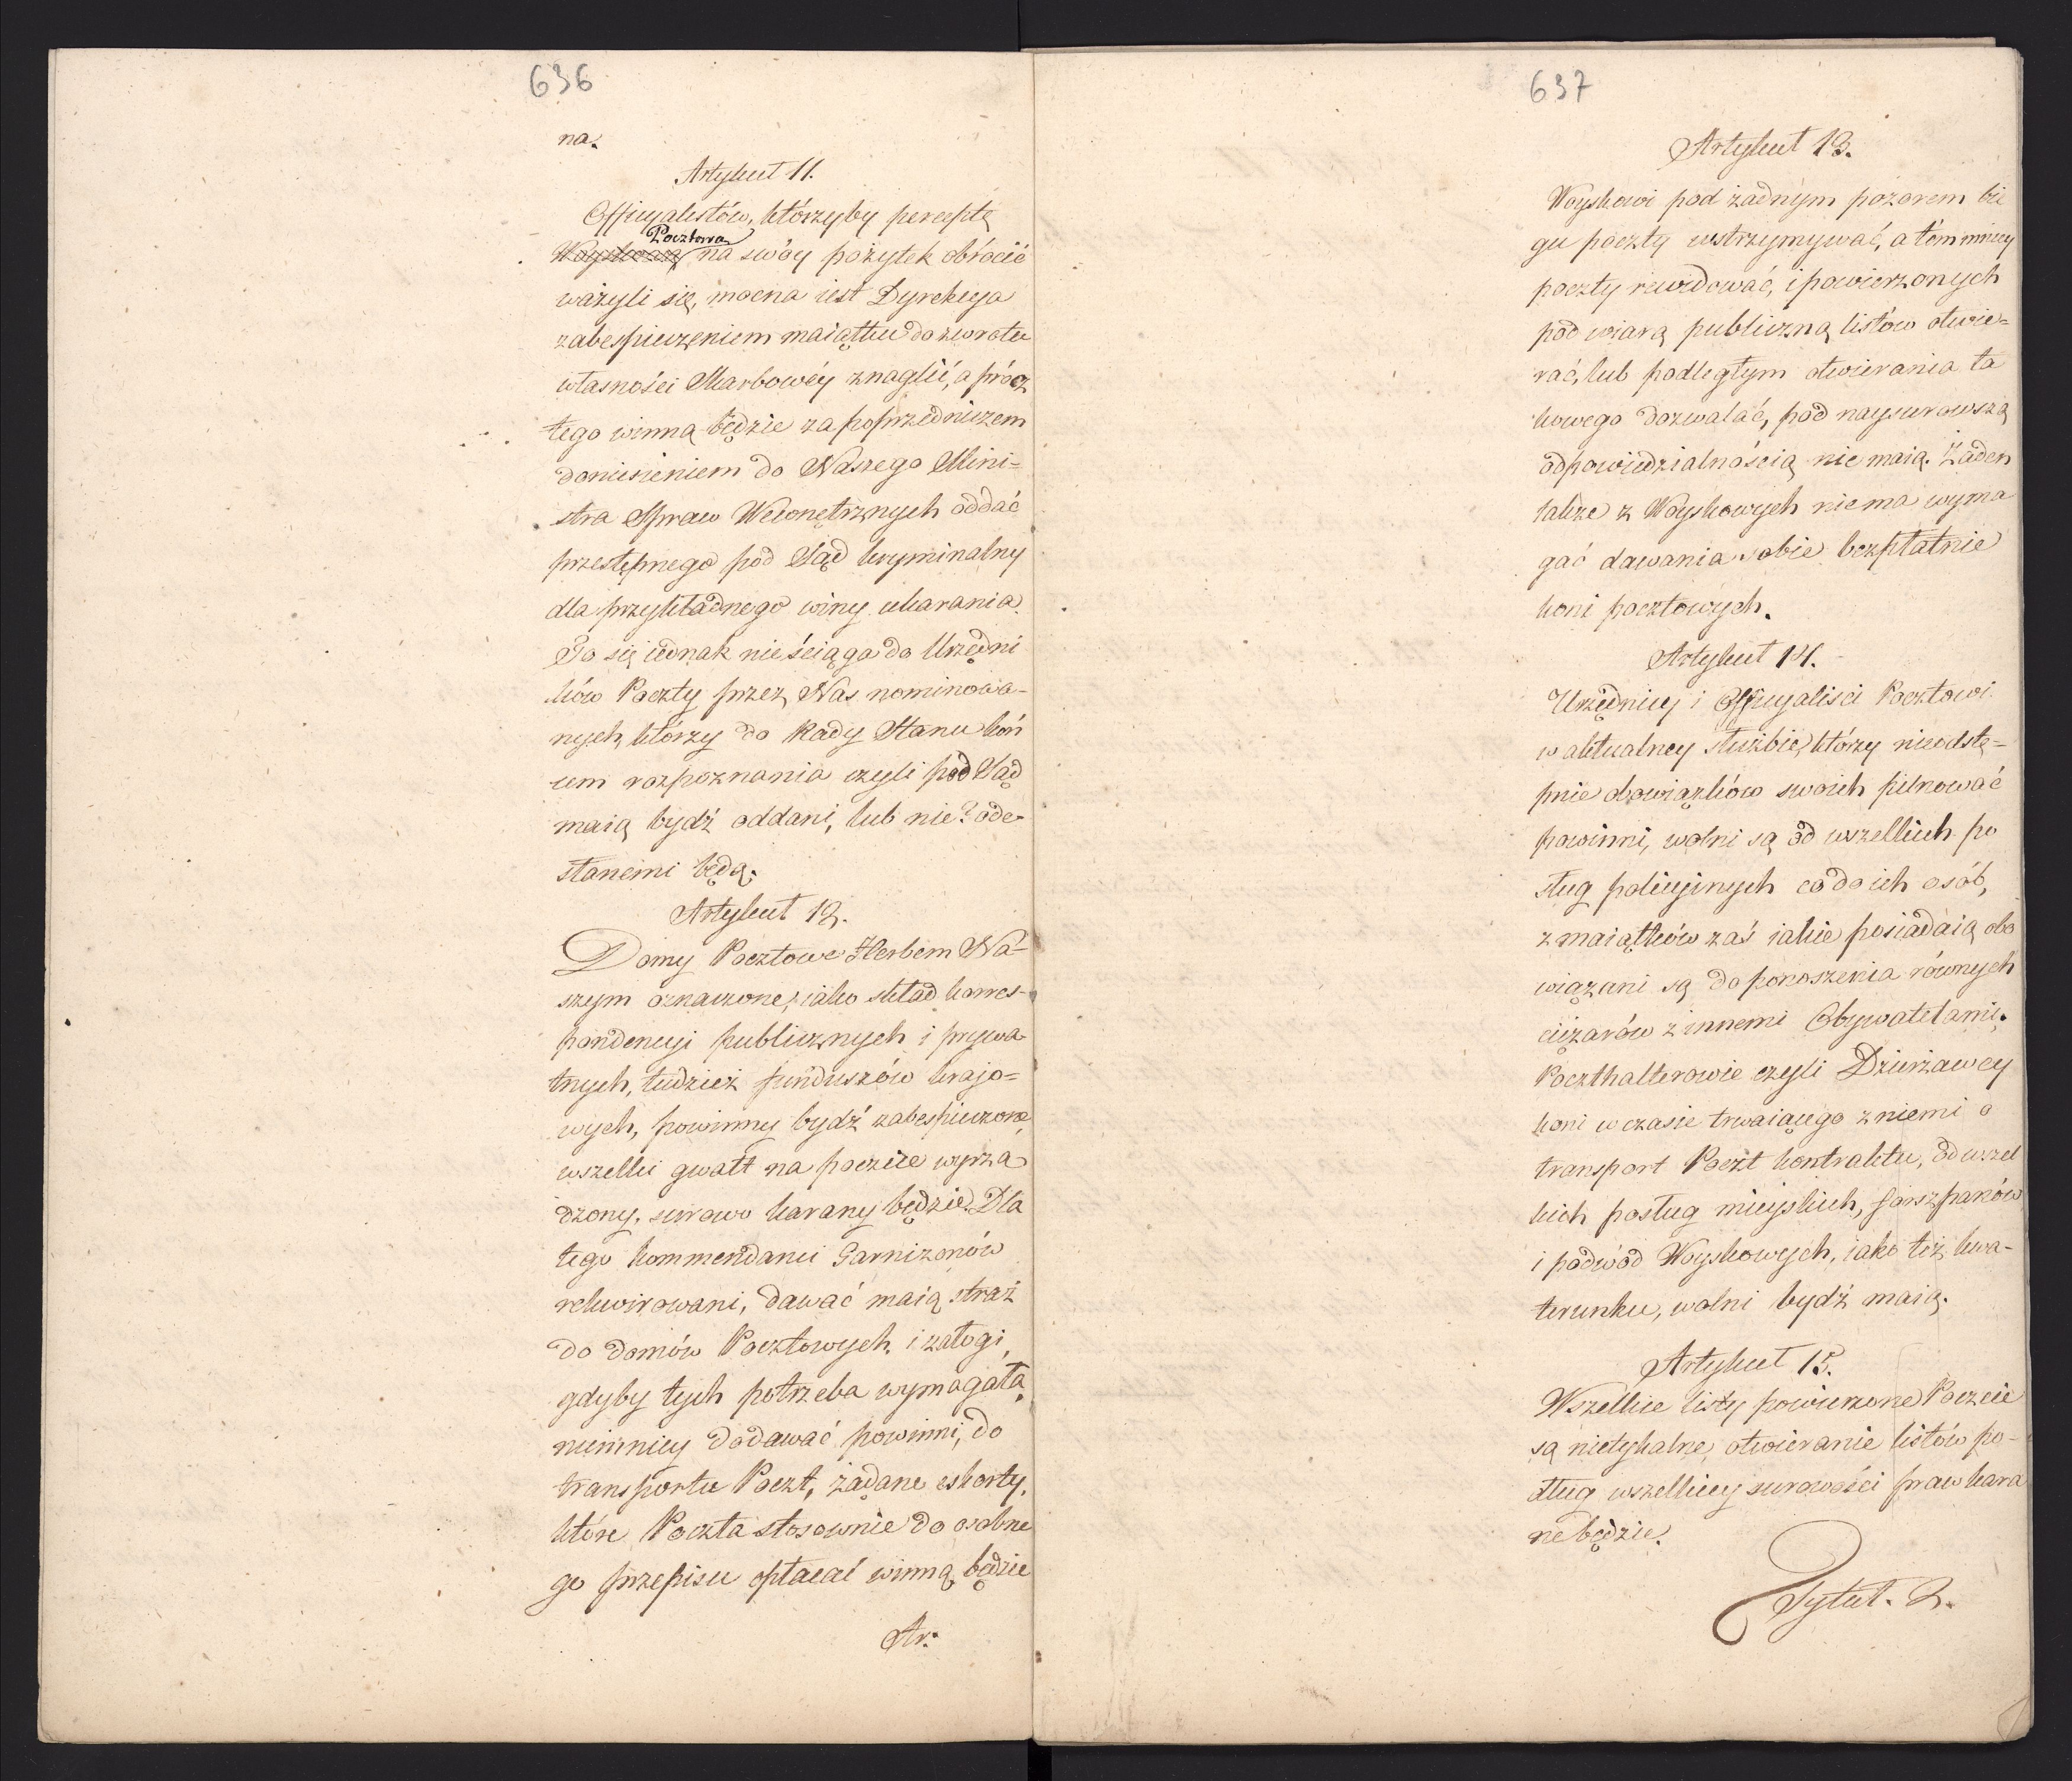 636
na.
Artykuł 11.
Officyalistów, którzyby perceptę
Pocztową
Woyskową na swóy pożytek obrócić
ważyli się, mocna iest Dyrekcya
zabespieczeniem maiątku do zwrotu
własności Skarbowéy znaglić, a prócz
tego winną będzie za poprzedniczem
doniesieniem do Naszego Mini=
stra Spraw Wewnętrznych oddać
przestępnego pod Sąd kryminalny
dla przykładnego winy ukarania.
To się iednak nie ściąga do Urzędni
ków Poczty przez Nas nominowa-
nych, którzy do Rady Stanu koń
cem rozpoznania czyli pod Sąd
maią bydź oddani, lub nie? ode-
słanemi będą.
Artykuł 12.
Domy Pocztowe Herbem Na-
szym oznaczone, iako skład korres-
pondencyi publicznych i prywa-
tnych, tudzież funduszów krajo=
wych, powinny bydź zabespieczone,
wszelki gwałt na poczcie wyrzą
dzony, surowo karany będzie. Dla
tego kommendanci Garnizonów
rekwirowani, dawać maią straż
do domów Pocztowych, i załogi,
gdyby tych potrzeba wymagała,
niemniey dodawać powinni, do
transportu Poczt, żądane eskorty,
które Poczta stosownie do osobne
go przepisu opłacać winną będzie
Ar:
637
Artykuł 13.
Woyskowi pod żadnym pozorem bie
gu poczty wstrzymywać, a tém mniey
poczty rewidować, i powierzonych
pod wiarą publiczną listów otwie=
rać, lub podległym otwierania ta
kowego dozwalać, pod naysurowszą
odpowiedzialnością nie maią. Żaden
także z Woyskowych nie ma wyma
gać dawania sobie bezpłatnie
koni pocztowych.
Artykuł 14.
Urzędnicy i Officyaliści Pocztowi
w aktualney służbie, którzy nieodstę=
pnie obowiązków swoich pilnować
powinni, wolni są od wszelkich po
sług policyjnych co do ich osób,
z maiątków zaś iakie posiadaią obo
wiązani są do ponoszenia równych
ciężarów z innemi Obywatelami.
Poczthalterowie czyli Dzierżawcy
koni w czasie trwaiącego z niemi o
transport Poczt kontraktu, od wszel
kich posług mieyskich, forszpanów
i podwód Woyskowych, iako też kwa-
terunku, wolni bydź maią.
Artykuł 15.
Wszelkie listy powierzone Poczcie
są nietykalne, otwieranie listów po-
dług wszelkiey surowości praw kara
ne będzie.
Tytuł. 2.